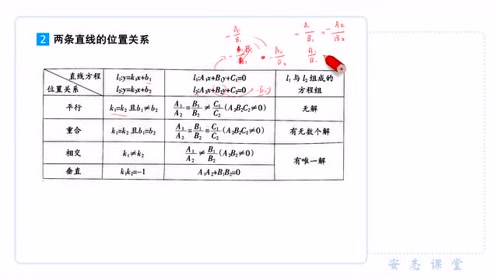 2 两条直线的位置关系
直线方程
位置关系
l₁:y=k₁x+b₁
l₂:y=k₂x+b₂
l₁:A₁x+B₁y+C₁=0
l₂:A₂x+B₂y+C₂=0
l₁与l₂组成的
方程组
平行 k₁=k₂且b₁≠b₂ A₁/A₂=B₁/B₂≠C₁/C₂(A₂B₂C₂≠0) 无解
重合 k₁=k₂且b₁=b₂ A₁/A₂=B₁/B₂=C₁/C₂(A₂B₂C₂≠0) 有无数个解
相交 k₁≠k₂ A₁/A₂≠B₁/B₂(A₂B₂≠0) 有唯一解
垂直 k₁k₂=-1 A₁A₂+B₁B₂=0
安志课堂